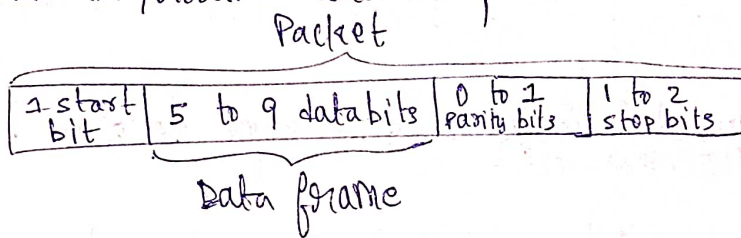 Packet
1 start bit
5 to 9 data bits
0 to 1 parity bits
1 to 2 stop bits
Data frame